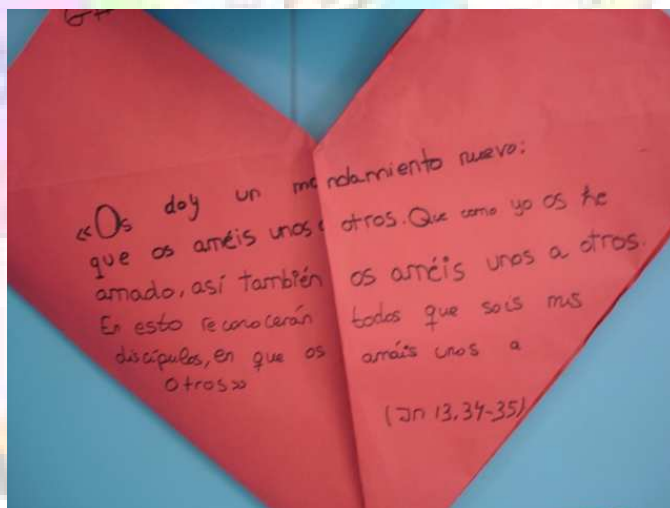 «Os doy un mandamiento nuevo:
que os améis unos a otros. Que como yo os he
amado, así también os améis unos a otros.
En esto reconocerán todos que sois mis
discípulos, en que os amáis unos a
otros»
(Jn 13, 34-35)